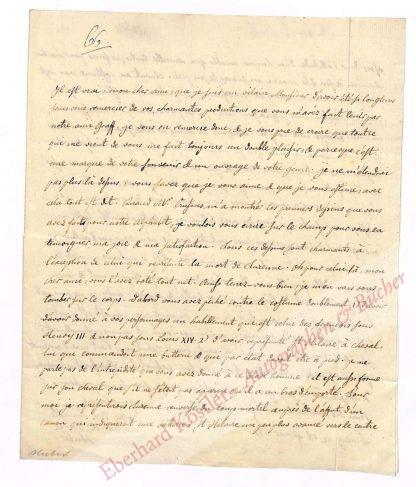 66,
Il est vrai, mon cher ami, que je suis un vilain Monsieur d'avoir été si longtems
sans vous remercier de vos charmantes productions que vous m'avez fait tenir par
notre ami Graff. je vous en remercie donc, & je vous prie de croire que tout ce
qui me vient de vous me fait toujours un double plaisir, & parce que c'est
une marque de votre souvenir & un ouvrage de votre genie. je ne m'étendrai
pas plus là dessus; vous savez que je vous aime & que je vous estime; avec
cela tout est dit. Quand Mr. m'a montré les premiers dessins que vous
avez faits pour notre alphabet, je voulois vous écrire sur le champ pour vous en
témoigner ma joie & ma satisfaction. tous ces dessins sont charmants à
l'exception de celui qui représente la mort de Turenne. Oh pour celui-là, mon
cher ami, vous l'avez raté tout net. Aussi tenez-vous bien; je m'en vais vous
tomber sur le corps. d'abord vous avez péché contre le costume doublement, 1°
d'avoir donné à vos personnages un habillement qui est celui des françois sous
Henry III & non pas sous Louis XIV. 2° d'avoir représenté St Hilaire à cheval
lui que commandoit une batterie & qui par etat devoit être à pied. je ne
parle pas de l'intrépidité que vous avez donné à ce jeune homme; il est aussi ferme
sur son cheval que s'il ne s'étoit pas apperçu qu'il a un bras d'emporté. Pour
moi je représenterois Turenne renversé du coup mortel auprès de l'affut d'un
canon qui indiqueroit une batterie, St Hilaire un peu plus avancé vers le centre
Huber
Eberhard Köstler Autographen & Bücher